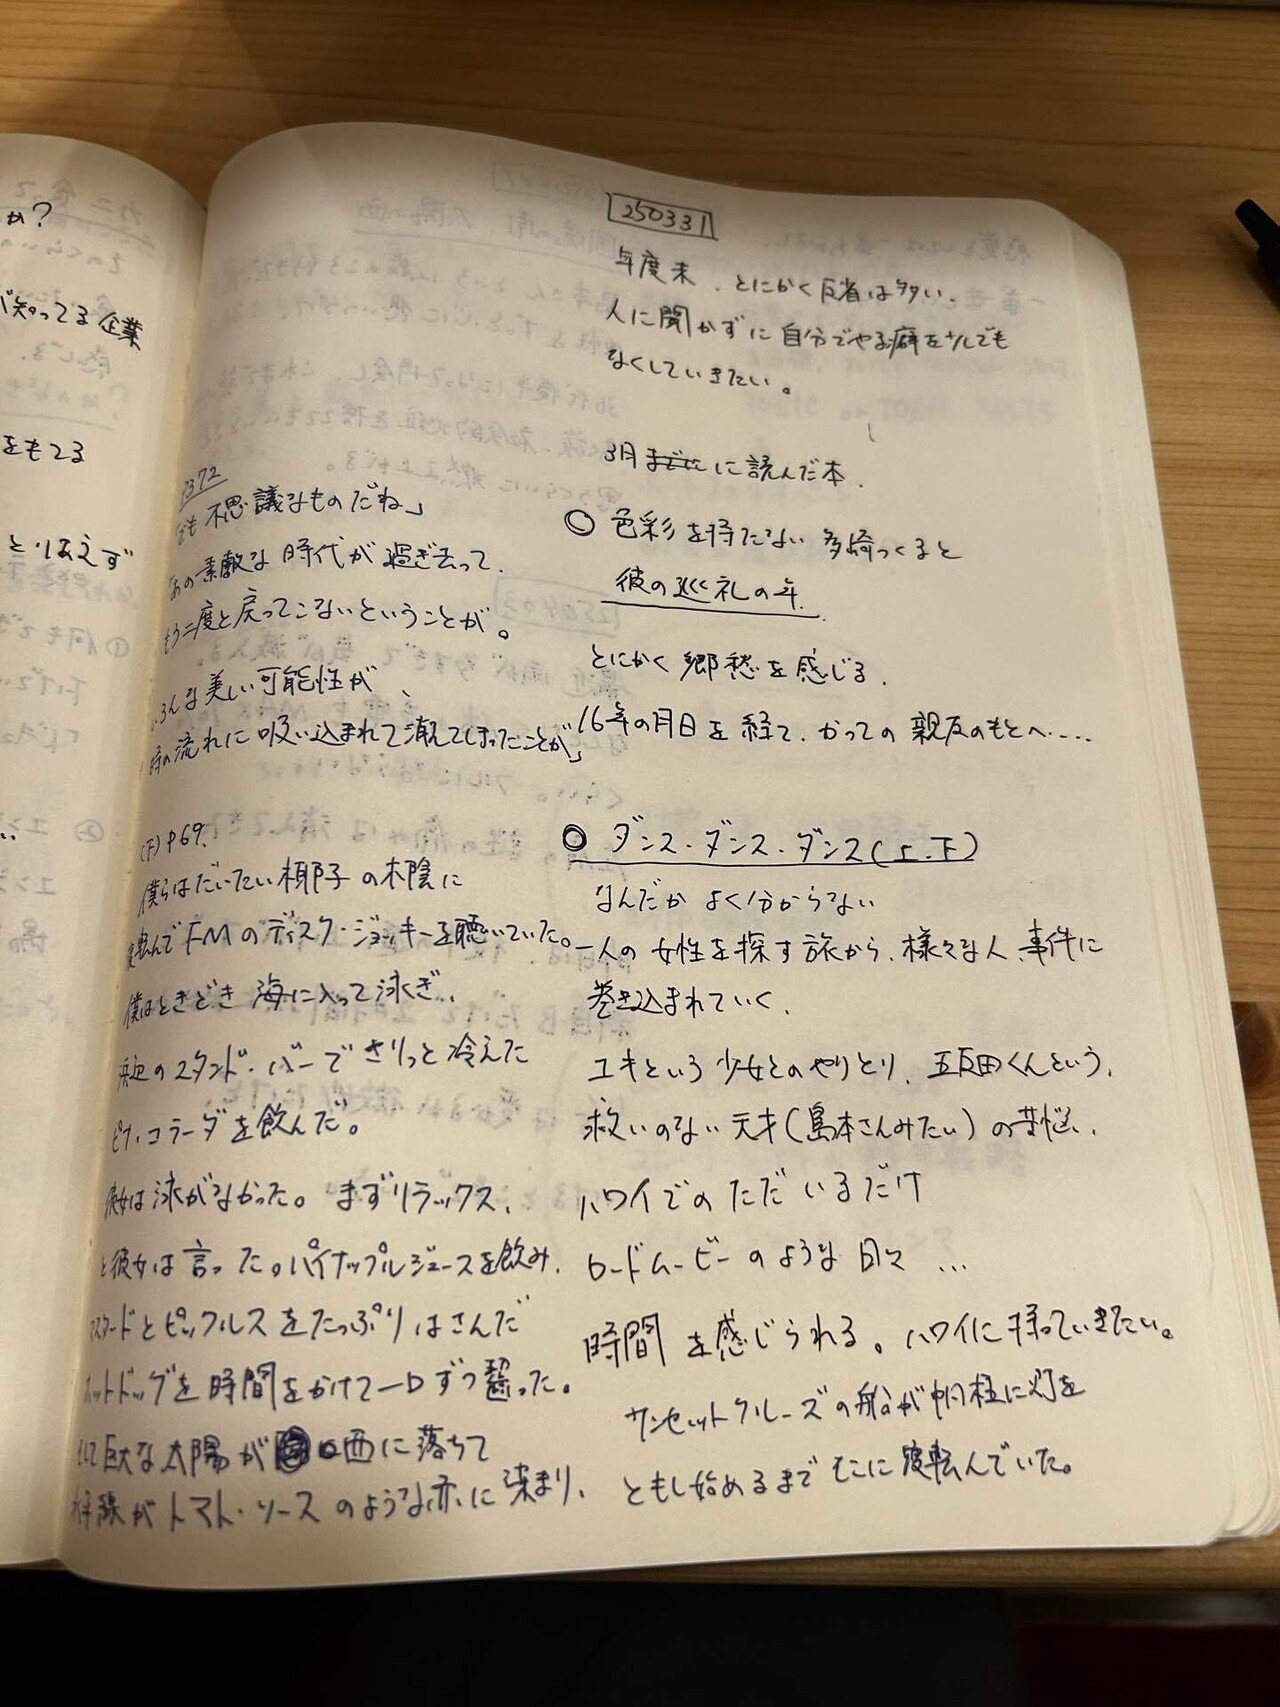 か?
知ってる企業
をもてる
とりあえず
250331
年度末、とにかく反省は多い。
人に聞かずに自分でやる癖を少しでも
なくしていきたい。
3月までに に読んだ本。
◎ 色彩を持たない 多崎つくると
彼の巡礼の年
とにかく郷愁を感じる。
16年の月日を経て、かつての親友のもとへ....
◎ ダンス・ダンス・ダンス(上.下)
なんだか よく分からない
一人の女性を探す旅から、様々な人、事件に
巻き込まれていく、
ユキという少女とのやりとり、五反田くんという、
救いのない天才(島本さんみたい)の苦悩、
ハワイでのただいるだけ
ロードムービーのような日々...
時間を感じられる。ハワイに持っていきたい。
P372
不思議なものだね」
「あの素敵な時代が過ぎ去って、
もう二度と戻ってこないということが。
いろんな美しい可能性が、
時の流れに吸い込まれて消えてしまったことが」
(下)P69.
僕らはだいたい椰子の木陰に
寝転んでFMのディスク・ジョッキーを聴いていた。
僕はときどき海に入って泳ぎ、
浜辺のスタンド・バーできりっと冷えた
ピナ・コラーダを飲んだ。
彼女は泳がなかった。まずリラックス、
と彼女は言った。パイナップルジュースを飲み、
マスタードとピックルスをたっぷりはさんだ
ホットドッグを時間をかけて一口ずつ齧った。
そして巨大な太陽が 西に落ちて
水平線がトマト・ソースのような赤に染まり、
サンセットクルーズの船が帆柱に灯を
ともし始めるまでそこに寝転んでいた。